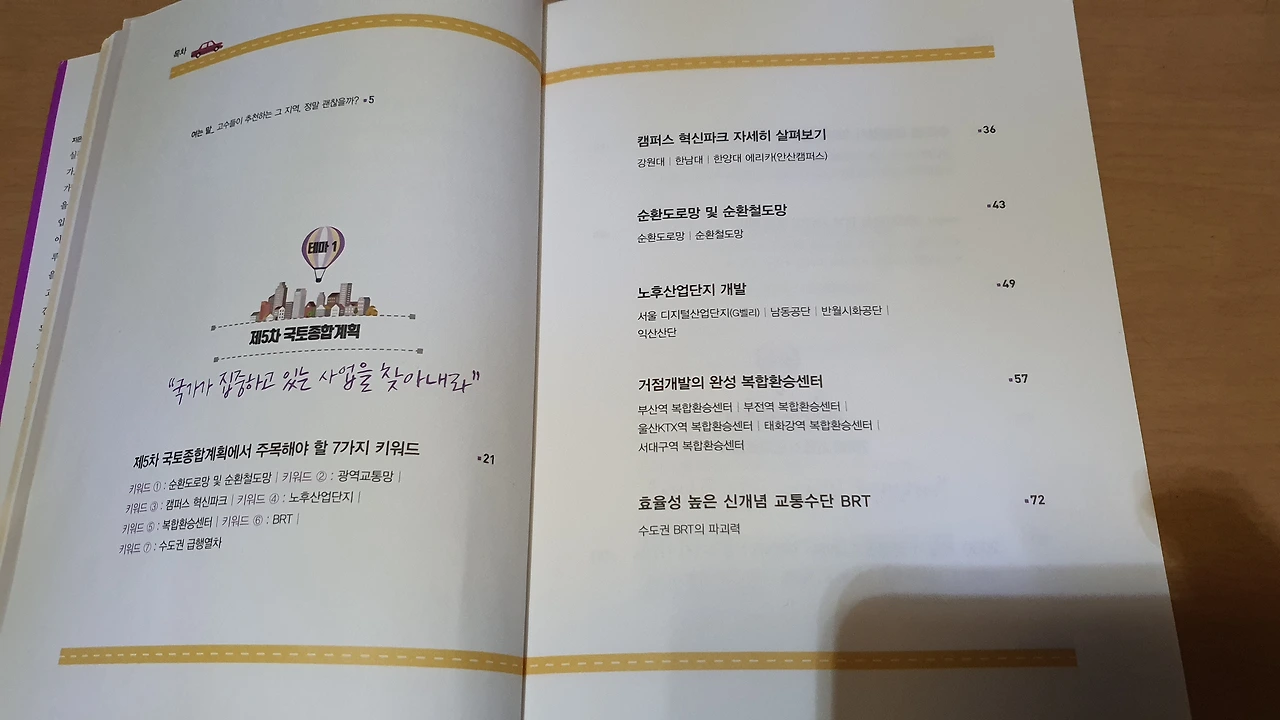 목차
여는 말_ 고수들이 추천하는 그 지역, 정말 괜찮을까? 5
테마 1
제5차 국토종합계획
"국가가 집중하고 있는 사업을 찾아내라"
제5차 국토종합계획에서 주목해야 할 7가지 키워드 21
키워드 ① : 순환도로망 및 순환철도망 | 키워드 ② : 광역교통망 |
키워드 ③ : 캠퍼스 혁신파크 | 키워드 ④ : 노후산업단지 |
키워드 ⑤ : 복합환승센터 | 키워드 ⑥ : BRT |
키워드 ⑦ : 수도권 급행열차
캠퍼스 혁신파크 자세히 살펴보기 36
강원대 | 한남대 | 한양대 에리카(안산캠퍼스)
순환도로망 및 순환철도망 43
순환도로망 | 순환철도망
노후산업단지 개발 49
서울 디지털산업단지(G벨리) | 남동공단 | 반월시화공단 |
익산산단
거점개발의 완성 복합환승센터 57
부산역 복합환승센터 | 부전역 복합환승센터 |
울산KTX역 복합환승센터 | 태화강역 복합환승센터 |
서대구역 복합환승센터
효율성 높은 신개념 교통수단 BRT 72
수도권 BRT의 파괴력